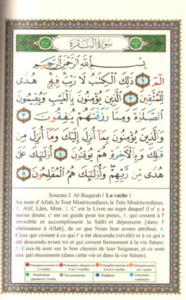 سُورَةُ الْبَقَرَةِ
بِسْمِ اللَّهِ الرَّحْمَٰنِ الرَّحِيمِ
الٓمٓ ١ ذَٰلِكَ الْكِتَابُ لَا رَيْبَ ۛ فِيهِ ۛ هُدًى
لِلْمُتَّقِينَ ٢ الَّذِينَ يُؤْمِنُونَ بِالْغَيْبِ وَيُقِيمُونَ
الصَّلَاةَ وَمِمَّا رَزَقْنَاهُمْ يُنْفِقُونَ ٣ وَالَّذِينَ
يُؤْمِنُونَ بِمَا أُنْزِلَ إِلَيْكَ وَمَا أُنْزِلَ مِنْ
قَبْلِكَ وَبِالْآخِرَةِ هُمْ يُوقِنُونَ ٤ أُولَٰئِكَ عَلَىٰ
هُدًى مِنْ رَبِّهِمْ ۖ وَأُولَٰئِكَ هُمُ الْمُفْلِحُونَ ٥
Sourate 2 Al-Baqarah ( La vache )
Au nom d'Allah, le Tout Miséricordieux, le Très Miséricordieux.
1. Alif, Lâm, Mim. 2. C' est le Livre au sujet duquel il n' y a
aucun doute, c' est un guide pour les pieux, 3. qui croient à l'
invisible et accomplissent la Salât et dépensent [dans l'
obéissance à Allah], de ce que Nous leur avons attribué, 4.
Ceux qui croient à ce qui t' a été descendu (révélé) et à ce qui a
été descendu avant toi et qui croient fermement à la vie future.
5. Ceux-là sont sur le bon chemin de leur Seigneur, et ce sont
eux qui réussissent (dans cette vie et dans la vie future).